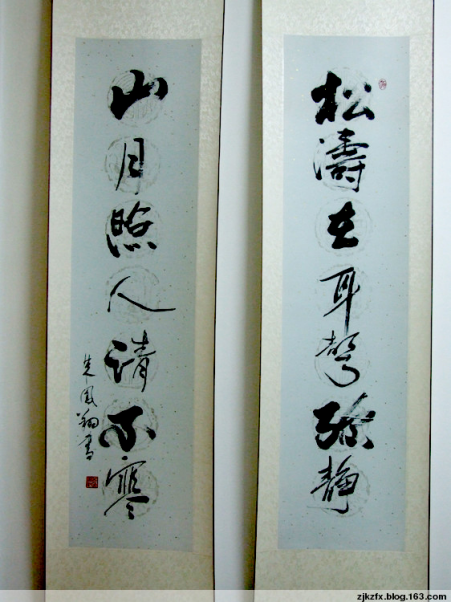 松濤在耳聲弥靜
山月照人清不寒
朱凤翔書
zjkzfx.blog.163.com